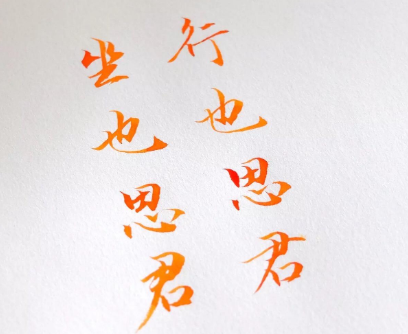 行也思君
坐也思君